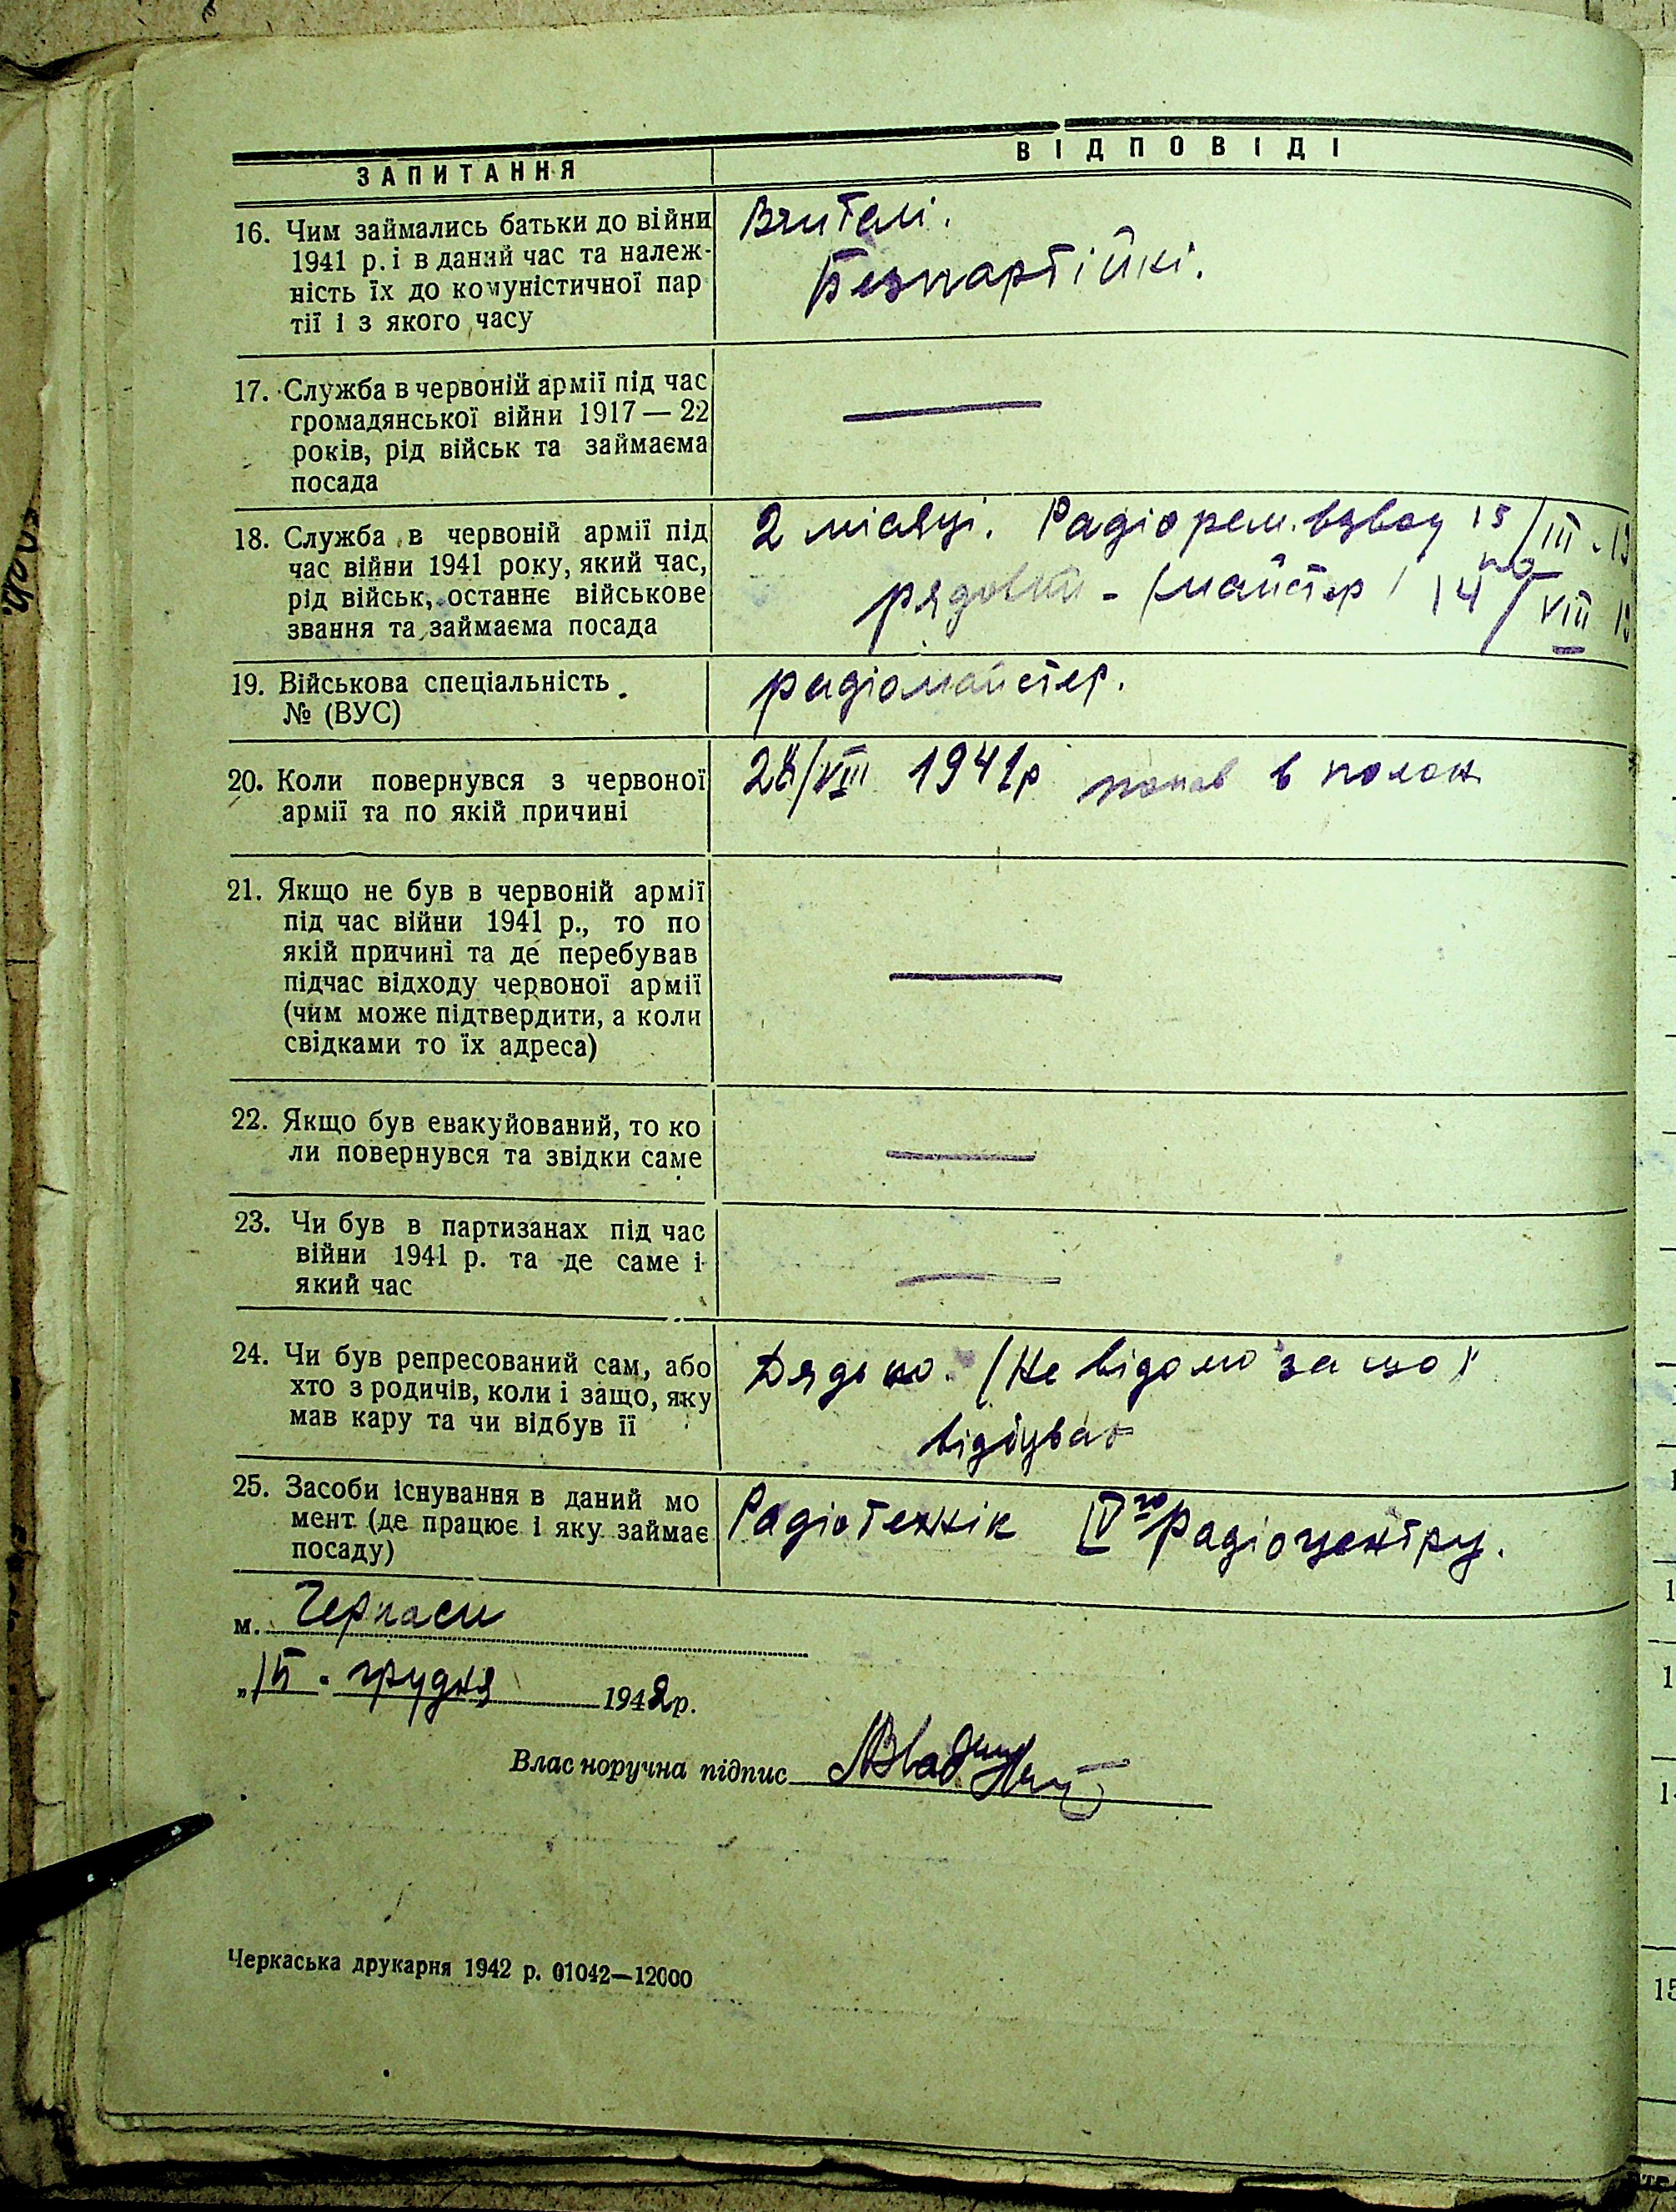 ЗАПИТАННЯ
ВІДПОВІДІ
16. Чим займались батьки до війни
1941 р. і в даний час та належ-
ність їх до комуністичної пар
тії і з якого часу
Вчителі.
Безпартійні.
17. Служба в червоній армії під час
громадянської війни 1917 — 22
років, рід військ та займаєма
посада
18. Служба в червоній армії під
час війни 1941 року, який час,
рід військ, останнє військове
звання та займаєма посада
2 місяці. Радіорем. взвод 15/III - 19
по
рядовий - (майстер) 14/VIII 19
19. Військова спеціальність
№ (ВУС)
радіомайстер.
20. Коли повернувся з червоної
армії та по якій причині
28/VIII 1941р попав в полон
21. Якщо не був в червоній армії
під час війни 1941 р., то по
якій причині та де перебував
підчас відходу червоної армії
(чим може підтвердити, а коли
свідками то їх адреса)
22. Якщо був евакуйований, то ко
ли повернувся та звідки саме
23. Чи був в партизанах під час
війни 1941 р. та де саме і
який час
24. Чи був репресований сам, або
хто з родичів, коли і защо, яку
мав кару та чи відбув її
Дядько. (Не відомо за що)
відбуває
25. Засоби існування в даний мо
мент (де працює і яку займає
посаду)
Радіотехнік IV го Радіоцентру.
м. Черкаси
"15. грудня 1942р.
Власноручна підпис
Черкаська друкарня 1942 р. 01042—12000